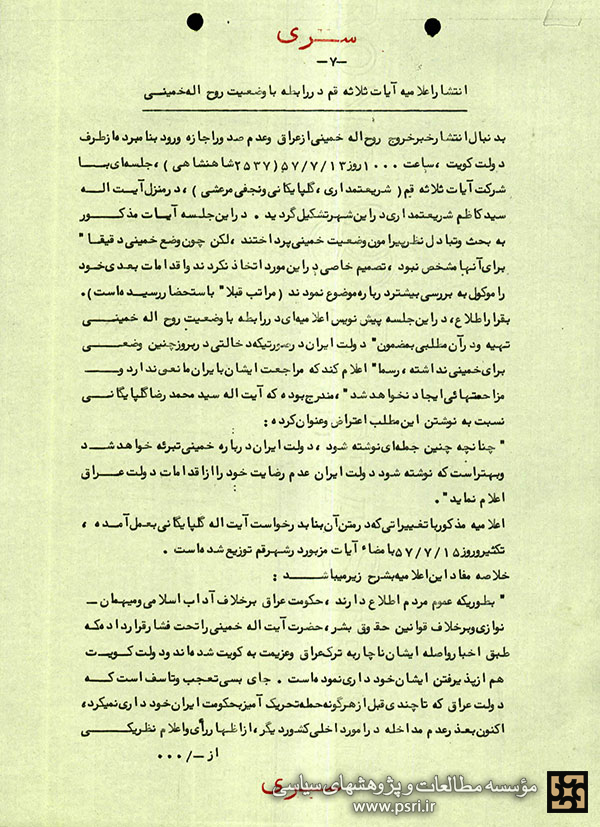 سری
-۷-
انتشار اعلامیه آیات ثلاثه قم در رابطه با وضعیت روح اله خمینی
بدنبال انتشار خبر خروج روح اله خمینی از عراق وعدم صدور اجازه ورود بنامبرده از طرف
دولت کویت ، ساعت ۱۰۰۰ روز ۵۷/۷/۱۳ (۲۵۳۷ شاهنشاهی) ، جلسه‌ای با
شرکت آیات ثلاثه قم ( شریعتمداری ، گلپایگانی ونجفی مرعشی ) ، در منزل آیت اله
سید کاظم شریعتمداری در این شهر تشکیل گردید . در این جلسه آیات مذکور
به بحث وتبادل نظر پیرامون وضعیت خمینی پرداختند ، لکن چون وضع خمینی دقیقا"
برای آنها مشخص نبود ، تصمیم خاصی در این مورد اتخاذ نکردند واقدامات بعدی خود
را موکول به بررسی بیشتر درباره موضوع نمودند ( مراتب قبلا" باستحضار رسیده است ) .
بقرار اطلاع ، در این جلسه پیش نویس اعلامیه‌ای در رابطه با وضعیت روح اله خمینی
تهیه ودر آن مطلبی بمضمون " دولت ایران در صورتیکه دخالتی در بروز چنین وضعی
برای خمینی نداشته ، رسما" اعلام کند که مراجعت ایشان بایران مانعی ندارد و
مزاحمتهائی ایجاد نخواهد شد " ، مندرج بوده که آیت اله سید محمد رضا گلپایگانی
نسبت به نوشتن این مطلب اعتراض وعنوان کرده :
" چنانچه چنین جمله‌ای نوشته شود ، دولت ایران درباره خمینی تبرئه خواهد شد
وبهتر است که نوشته شود دولت ایران عدم رضایت خود را از اقدامات دولت عراق
اعلام نماید " .
اعلامیه مذکور با تغییراتی که در متن آن بنا بدرخواست آیت اله گلپایگانی بعمل آمده ،
تکثیر وروز ۵۷/۷/۱۵ بامضاء آیات مزبور در شهر قم توزیع شده است .
خلاصه مفاد این اعلامیه بشرح زیر میباشد :
" بطوریکه عموم مردم اطلاع دارند ، حکومت عراق برخلاف آداب اسلامی ومیهمان -
نوازی وبرخلاف قوانین حقوق بشر ، حضرت آیت اله خمینی را تحت فشار قرار داده که
طبق اخبار واصله ایشان ناچار به ترک عراق وعزیمت به کویت شده‌اند ودولت کویت
هم از پذیرفتن ایشان خودداری نموده است . جای بسی تعجب وتاسف است که
دولت عراق که تا چندی قبل از هر گونه حمله تحریک آمیز بحکومت ایران خودداری نمیکرد،
اکنون بعذر عدم مداخله در امور داخلی کشور دیگر ، از اظهار رأی واعلام نظر یکی
از -/۰۰۰
سری
مؤسسه مطالعات و پژوهشهای سیاسی
www.psri.ir